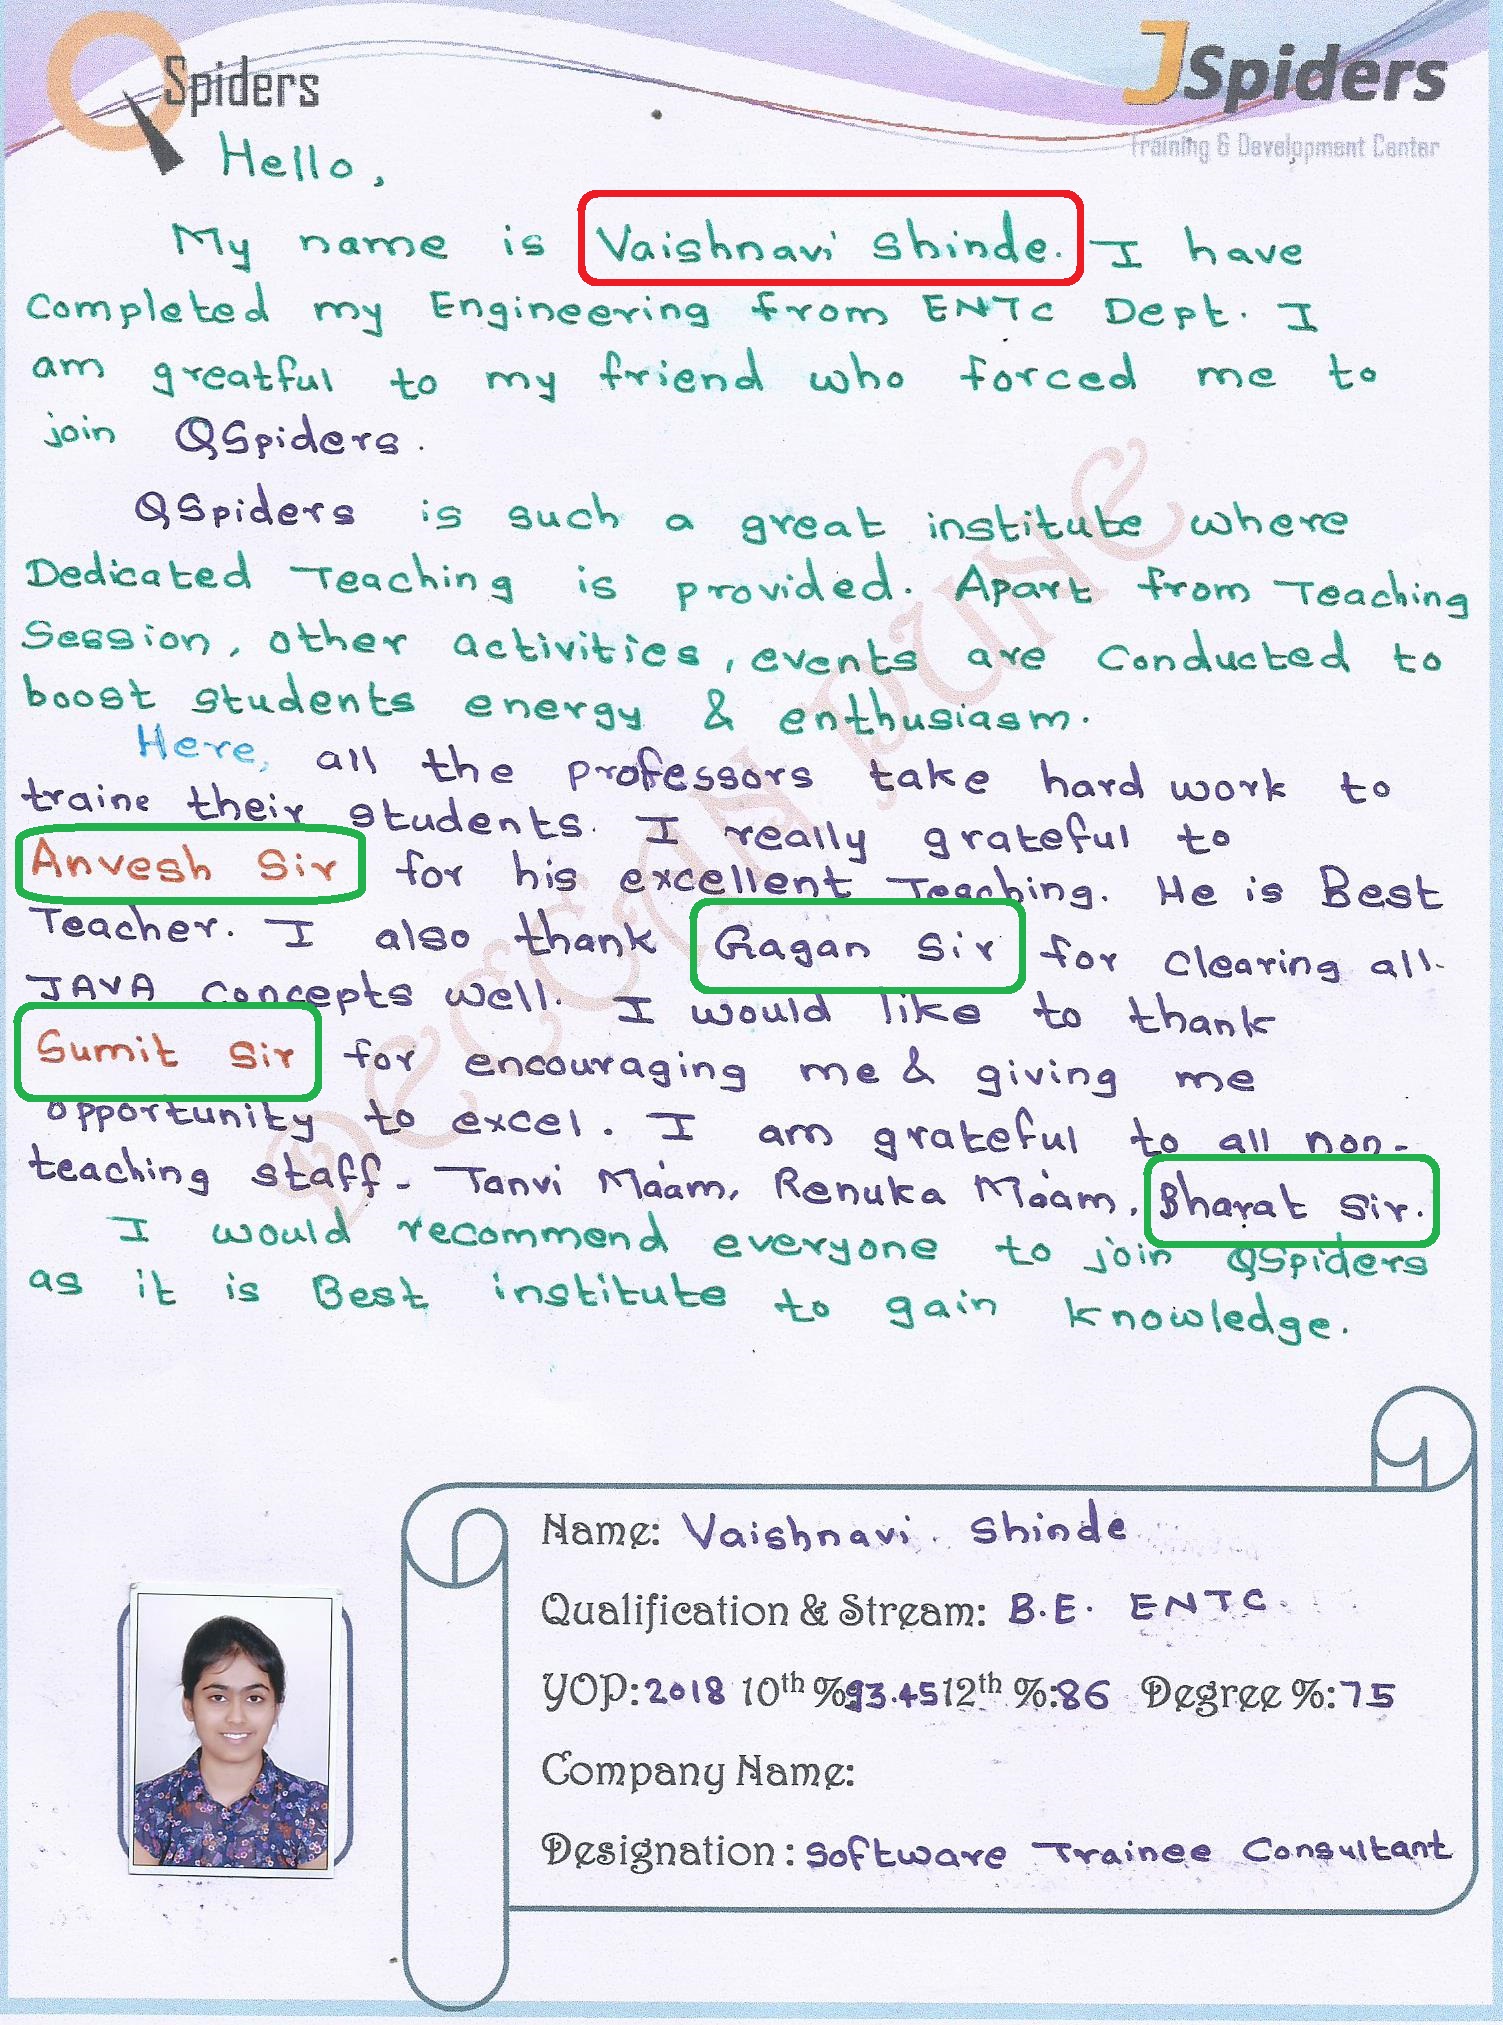 QSpiders
JSpiders
Training & Development Center
Hello,
My name is Vaishnavi Shinde. I have
completed my Engineering from ENTC Dept. I
am greatful to my friend who forced me to
join QSpiders.
QSpiders is such a great institute where
Dedicated Teaching is provided. Apart from Teaching
Session, other activities, events are conducted to
boost students energy & enthusiasm.
Here, all the professors take hard work to
traine their students. I really grateful to
Anvesh Sir for his excellent Teaching. He is Best
Teacher. I also thank Gagan Sir for clearing all
JAVA concepts well. I would like to thank
Sumit Sir for encouraging me & giving me
opportunity to excel. I am grateful to all non-
teaching staff - Tanvi Ma'am, Renuka Ma'am, Bharat Sir.
I would recommend everyone to join QSpiders
as it is Best institute to gain knowledge.
DECCAN PUNE
Name: Vaishnavi. Shinde
Qualification & Stream: B.E. ENTC.
YOP:2018 10th %93.45 12th %:86 Degree %:75
Company Name:
Designation : Software Trainee Consultant